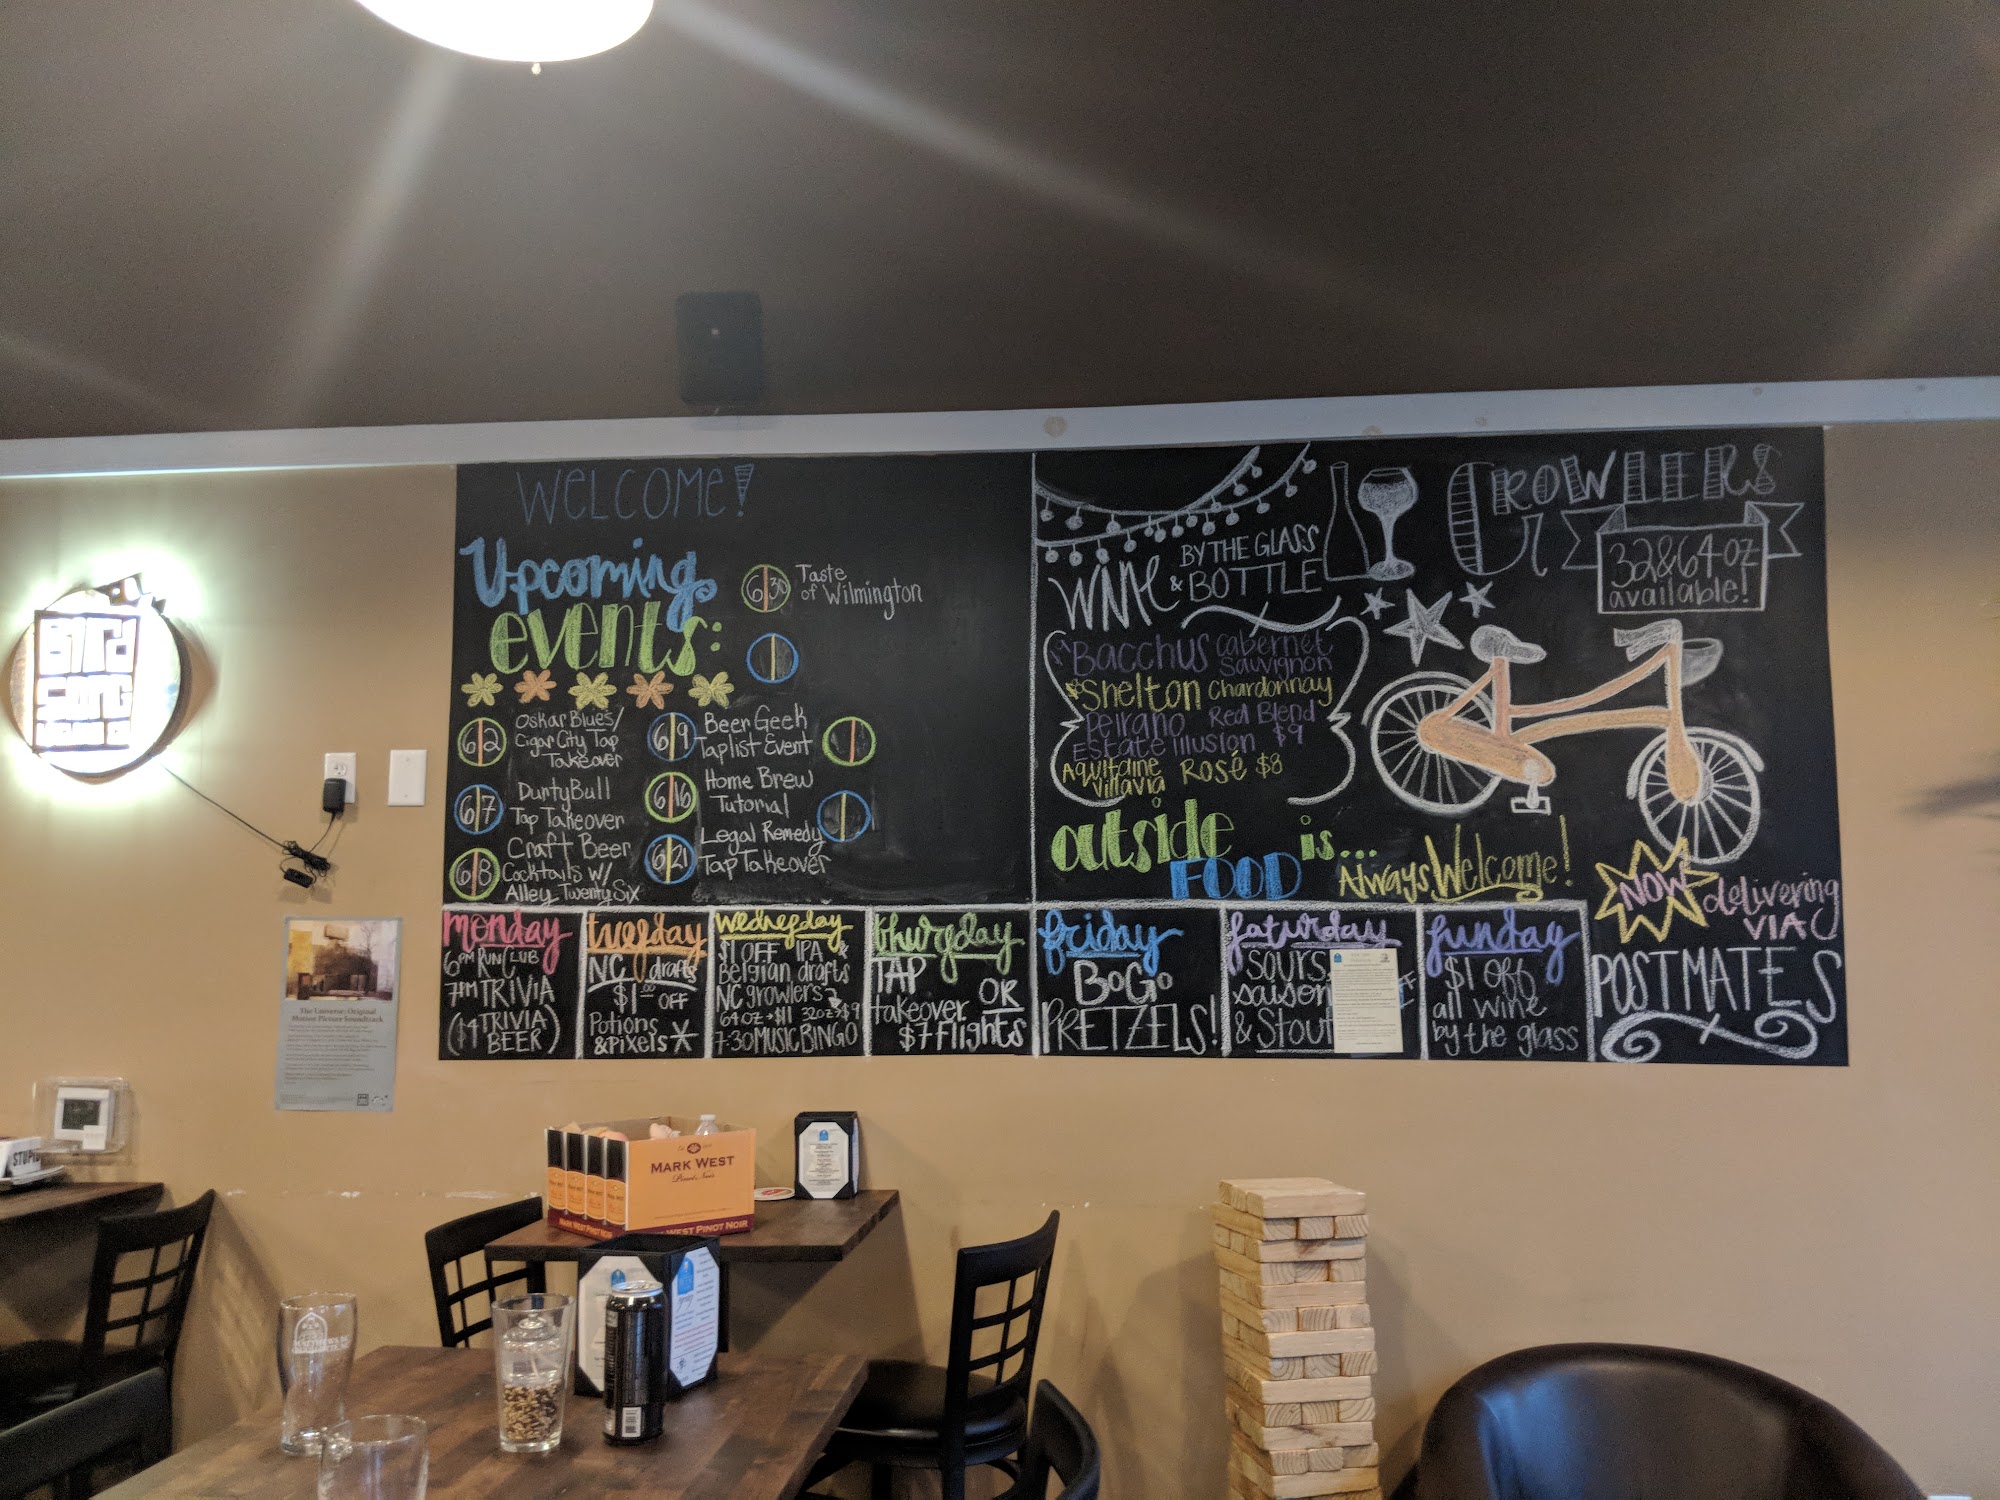 WELCOME!
Upcoming
events:
6/2 Oskar Blues/
Cigar City Tap
Takeover
6/7 DurtyBull
Tap Takeover
6/8 Craft Beer
Cocktails w/
Alley Twenty Six
6/9 Beer Geek
Taplist Event
6/16 Home Brew
Tutorial
6/21 Legal Remedy
Tap Takeover
6/30 Taste
of Wilmington
WINE BY THE GLASS
& BOTTLE
Bacchus Cabernet
Sauvignon
Shelton Chardonnay
Peirano Red Blend
Estate Illusion $9
Aquitaine Rosé $8
Villavia
GROWLERS
32 & 64 oz
available!
outside is...
FOOD Always Welcome!
NOW delivering
VIA
POSTMATES
monday
6PM RUN CLUB
7PM TRIVIA
($4 TRIVIA
BEER)
tuesday
NC drafts
$1.00 OFF
Potions
& Pixels*
wednesday
$1 OFF IPA &
Belgian drafts
NC growlers
64oz→$11 32oz→$9
7:30 MUSIC BINGO
thursday
TAP
takeover OR
$7 flights
friday
BoGo
PRETZELS!
saturday
SOURS,
saison
& Stout
sunday
$1 off
all wine
by the glass
The Universe: Original
Motion Picture Soundtrack
STUPID
MARK WEST
Pinot Noir
MARK WEST PINOT NOIR
WEST PINOT NOIR